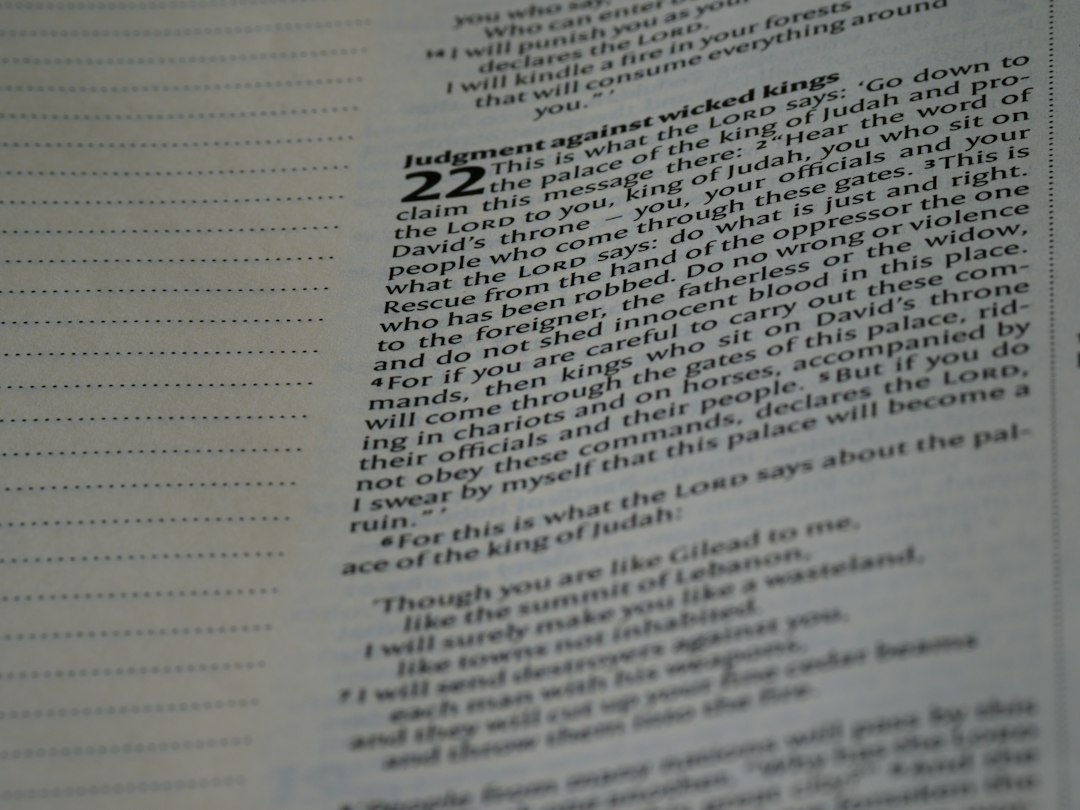 you who say,
Who can enter
¹⁴ I will punish you as your
declares the LORD.
I will kindle a fire in your forests
that will consume everything around
you." '
Judgment against wicked kings
22 This is what the LORD says: 'Go down to
the palace of the king of Judah and pro-
claim this message there: ² "Hear the word of
the LORD to you, king of Judah, you who sit on
David's throne – you, your officials and your
people who come through these gates. ³ This is
what the LORD says: do what is just and right.
Rescue from the hand of the oppressor the one
who has been robbed. Do no wrong or violence
to the foreigner, the fatherless or the widow,
and do not shed innocent blood in this place.
⁴ For if you are careful to carry out these com-
mands, then kings who sit on David's throne
will come through the gates of this palace, rid-
ing in chariots and on horses, accompanied by
their officials and their people. ⁵ But if you do
not obey these commands, declares the LORD,
I swear by myself that this palace will become a
ruin." '
⁶ For this is what the LORD says about the pal-
ace of the king of Judah:
'Though you are like Gilead to me,
like the summit of Lebanon,
I will surely make you like a wasteland,
like towns not inhabited.
⁷ I will send destroyers against you,
each man with his weapons,
and they will cut up your fine cedar beams
and throw them into the fire.
People from many nations will pass by this